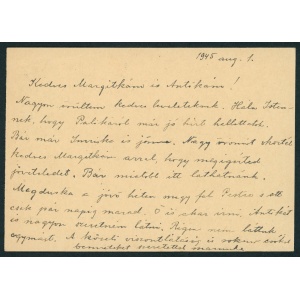 1945 aug. 1.
Kedves Margitkám és Antikám!
Nagyon örültem kedves leveleteknek. Hála Isten-
nek, hogy Palikáról már jó hírt hallottatok.
Bár már Imruska is jönne. Nagy örömet okoztál
kedves Margitkám azzal, hogy megígérted
jöveteledet. Bár mielőbb itt láthatnánk.
Magduska a jövő héten megy fel Pestre s ott
csak pár napig marad. Ő is akar írni. Antikát
és nagyon szeretném látni. Régen nem láttuk
egymást. A közeli viszontlátásig is sokszor csókol
benneteket szeretettel